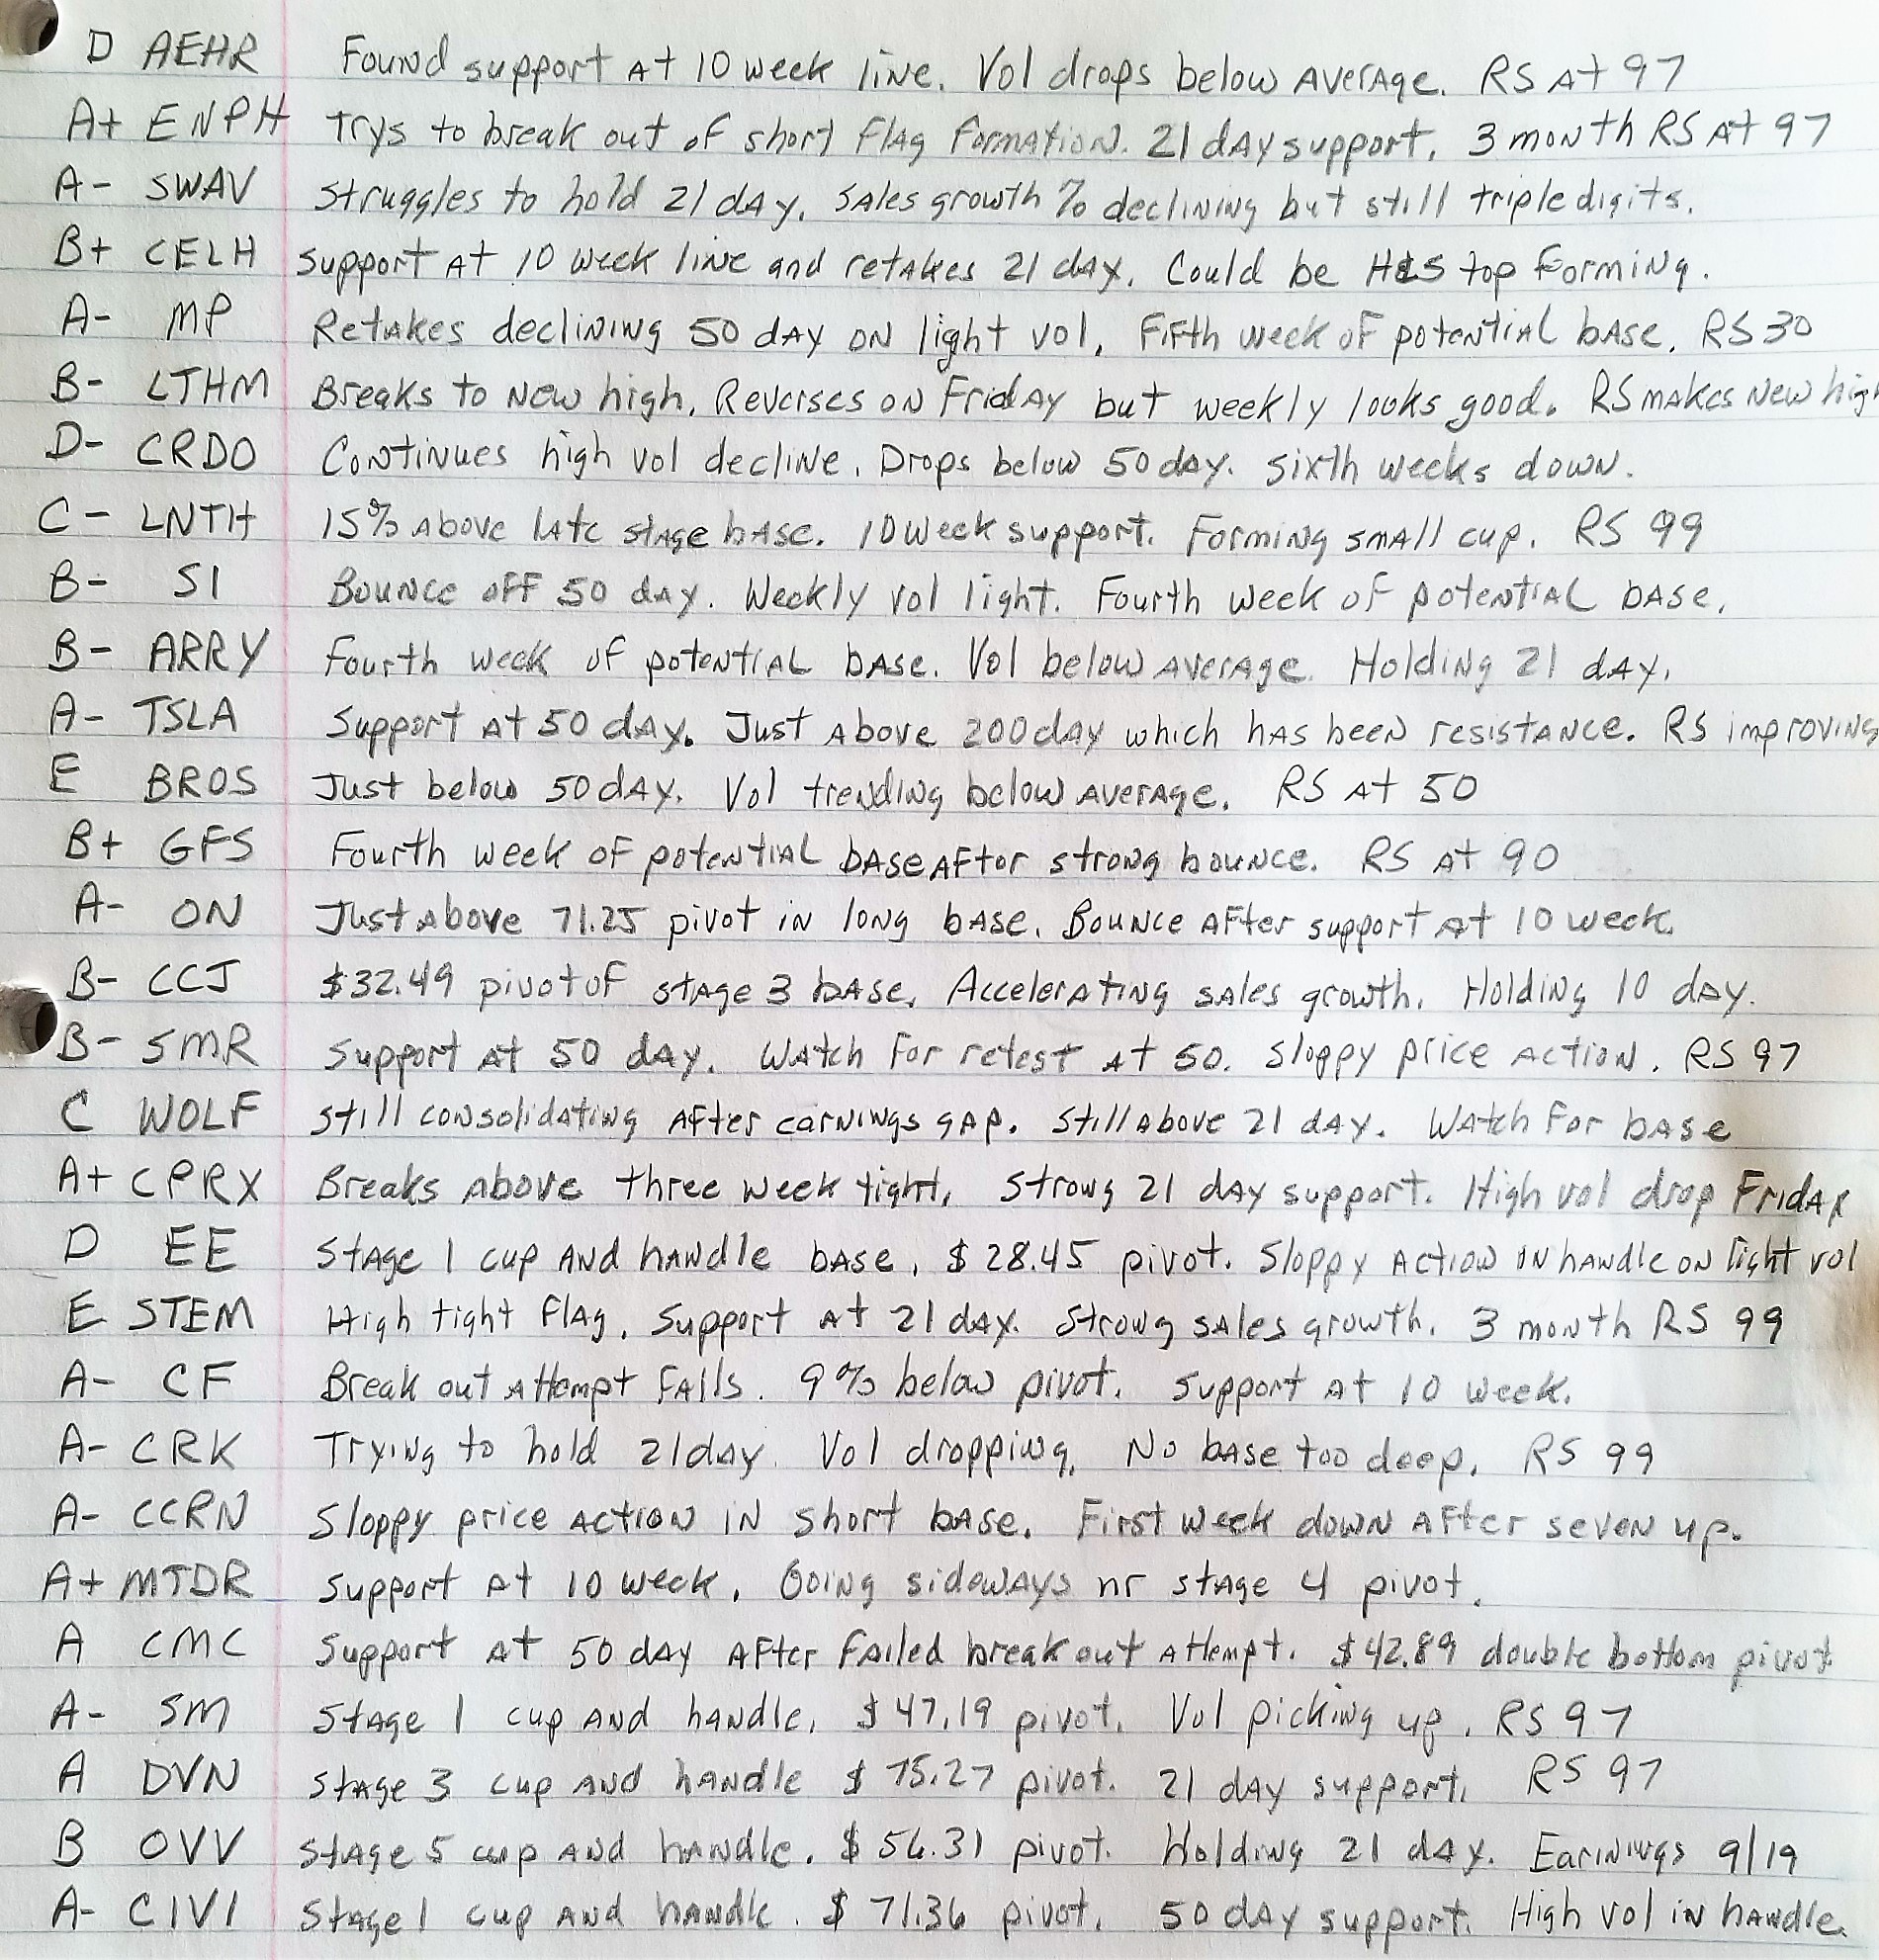 D AEHR Found support at 10 week line. Vol drops below average. RS at 97
A+ ENPH Trys to break out of short flag formation. 21 day support. 3 month RS at 97
A- SWAV Struggles to hold 21 day. Sales growth % declining but still triple digits.
B+ CELH Support at 10 week line and retakes 21 day. Could be H&S top forming.
A- MP Retakes declining 50 day on light vol. Fifth week of potential base. RS 30
B- LTHM Breaks to new high. Reverses on Friday but weekly looks good. RS makes new high
D- CRDO Continues high vol decline. Drops below 50 day. Sixth weeks down.
C- LNTH 15% above late stage base. 10 week support. Forming small cup. RS 99
B- SI Bounce off 50 day. Weekly vol light. Fourth week of potential base.
B- ARRY Fourth week of potential base. Vol below average. Holding 21 day.
A- TSLA Support at 50 day. Just above 200 day which has been resistance. RS improving
E BROS Just below 50 day. Vol trending below average. RS at 50
B+ GFS Fourth week of potential base after strong bounce. RS at 90
A- ON Just above 71.25 pivot in long base. Bounce after support at 10 week.
B- CCJ $32.49 pivot of stage 3 base. Accelerating sales growth. Holding 10 day.
B- SMR Support at 50 day. Watch for retest at 50. Sloppy price action. RS 97
C WOLF Still consolidating after earnings gap. Still above 21 day. Watch for base
A+ CPRX Breaks above three week tight. Strong 21 day support. High vol drop Friday
D EE Stage 1 cup and handle base. $28.45 pivot. Sloppy action in handle on light vol
E STEM High tight flag. Support at 21 day. Strong sales growth. 3 month RS 99
A- CF Break out attempt fails. 9% below pivot. Support at 10 week.
A- CRK Trying to hold 21 day. Vol dropping. No base too deep. RS 99
A- CCRN Sloppy price action in short base. First week down after seven up.
A+ MTDR Support at 10 week. Going sideways nr stage 4 pivot.
A CMC Support at 50 day after failed break out attempt. $42.89 double bottom pivot
A- SM Stage 1 cup and handle. $47.19 pivot. Vol picking up. RS 97
A DVN Stage 3 cup and handle $75.27 pivot. 21 day support. RS 97
B OVV Stage 5 cup and handle. $56.31 pivot. Holding 21 day. Earinings 9/19
A- CIVI Stage 1 cup and handle. $71.36 pivot. 50 day support. High vol in handle.